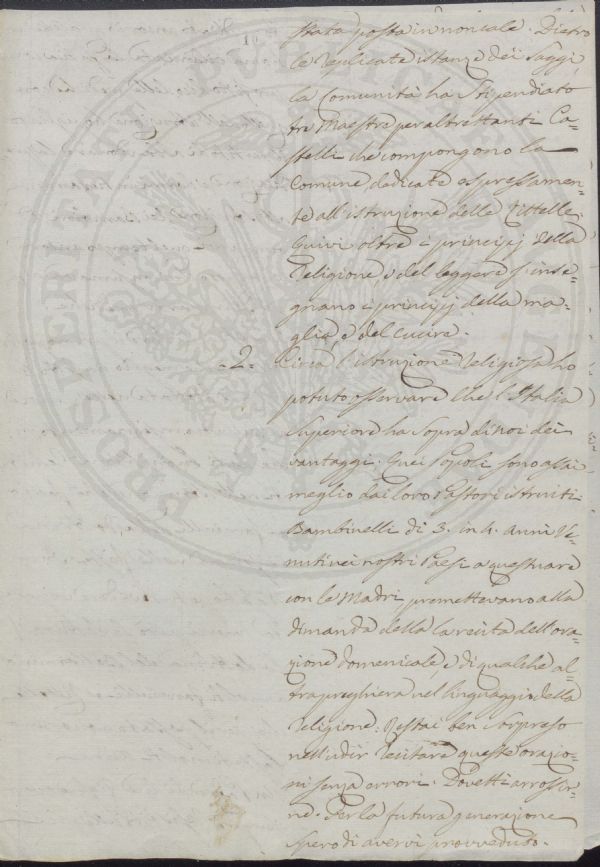 stata posta in non cale. Dietro
le replicate istanze dei Saggi
la Comunità ha stipendiato
tre Maestre per altrettanti Ca=
stelli che compongono la
Comune dedicate espressamen=
te all'istruzione delle Zittelle.
Quivi oltre i principj della
Religione, e del leggere s'inse=
gnano i principj della ma=
glia, e del cucire.
=2= Circa l'istruzione Religiosa ho
potuto osservare che l'Italia
Superiore ha sopra di noi dei
vantaggi. Quei Popoli sono assai
meglio dai loro Pastori istruiti.
Bambinelli di 3. in 4. anni ve=
nuti nei nostri Paesi a questuare
con le Madri, premettevano alla
dimanda della la recita dell'ora=
zione domenicale, e di qualche al=
tra preghiera nel linguaggio della
Religione. Restai ben sorpreso
nell'udir recitare queste orazio=
ni senza errori. Dovetti arrossir=
ne. Per la futura generazione
spero di avervi provveduto.
PROSPERITAE PVBLICAE